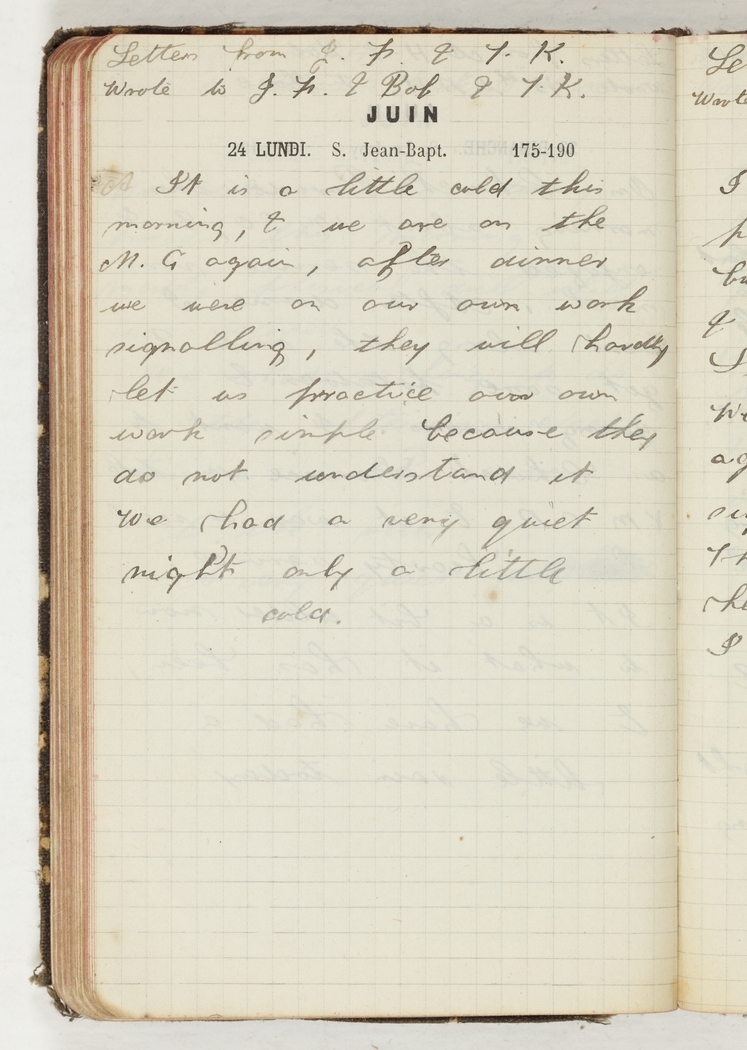 Letters from J. F. & T. K.
Wrote to J. F. & Bob & T. K.
JUIN
24 LUNDI. S. Jean-Bapt. 175-190
It is a little cold this
morning, & we are on the
M. G again, after dinner
we were on our own work
signalling, they will hardly
let us practice our own
work simple because they
do not understand it
We had a very quiet
night only a little
cold.